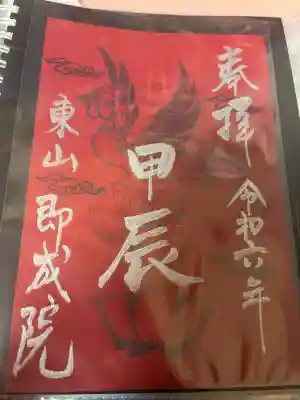 奉拝
令和六年
甲辰
東山即成院